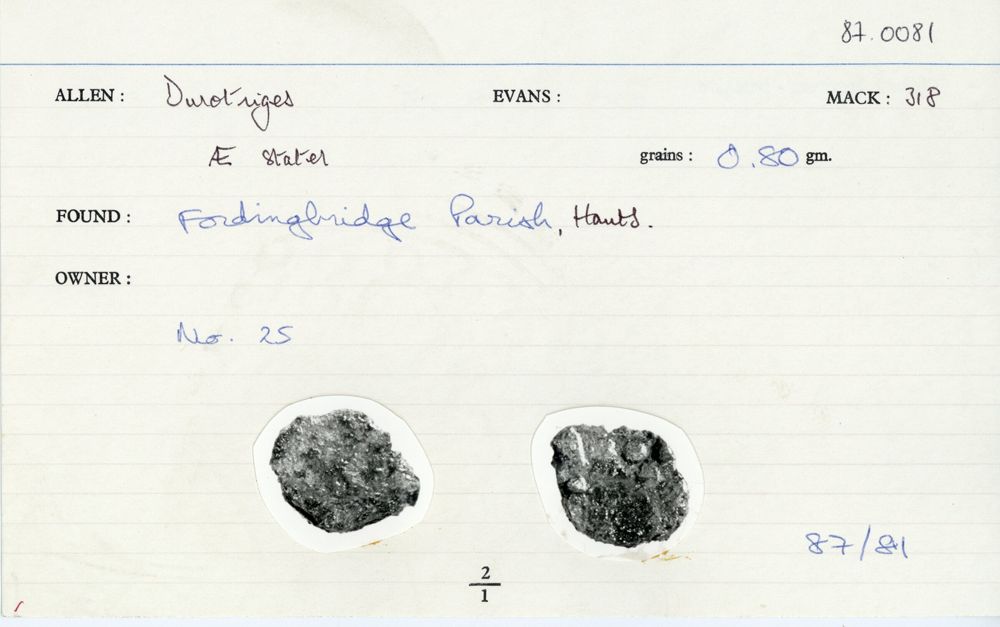 87.0081
ALLEN : Durotriges EVANS : MACK : 318
Æ Stater grains : 0.80 gm.
FOUND : Fordingbridge Parish, Hants.
OWNER :
No. 25
87/81
2
1